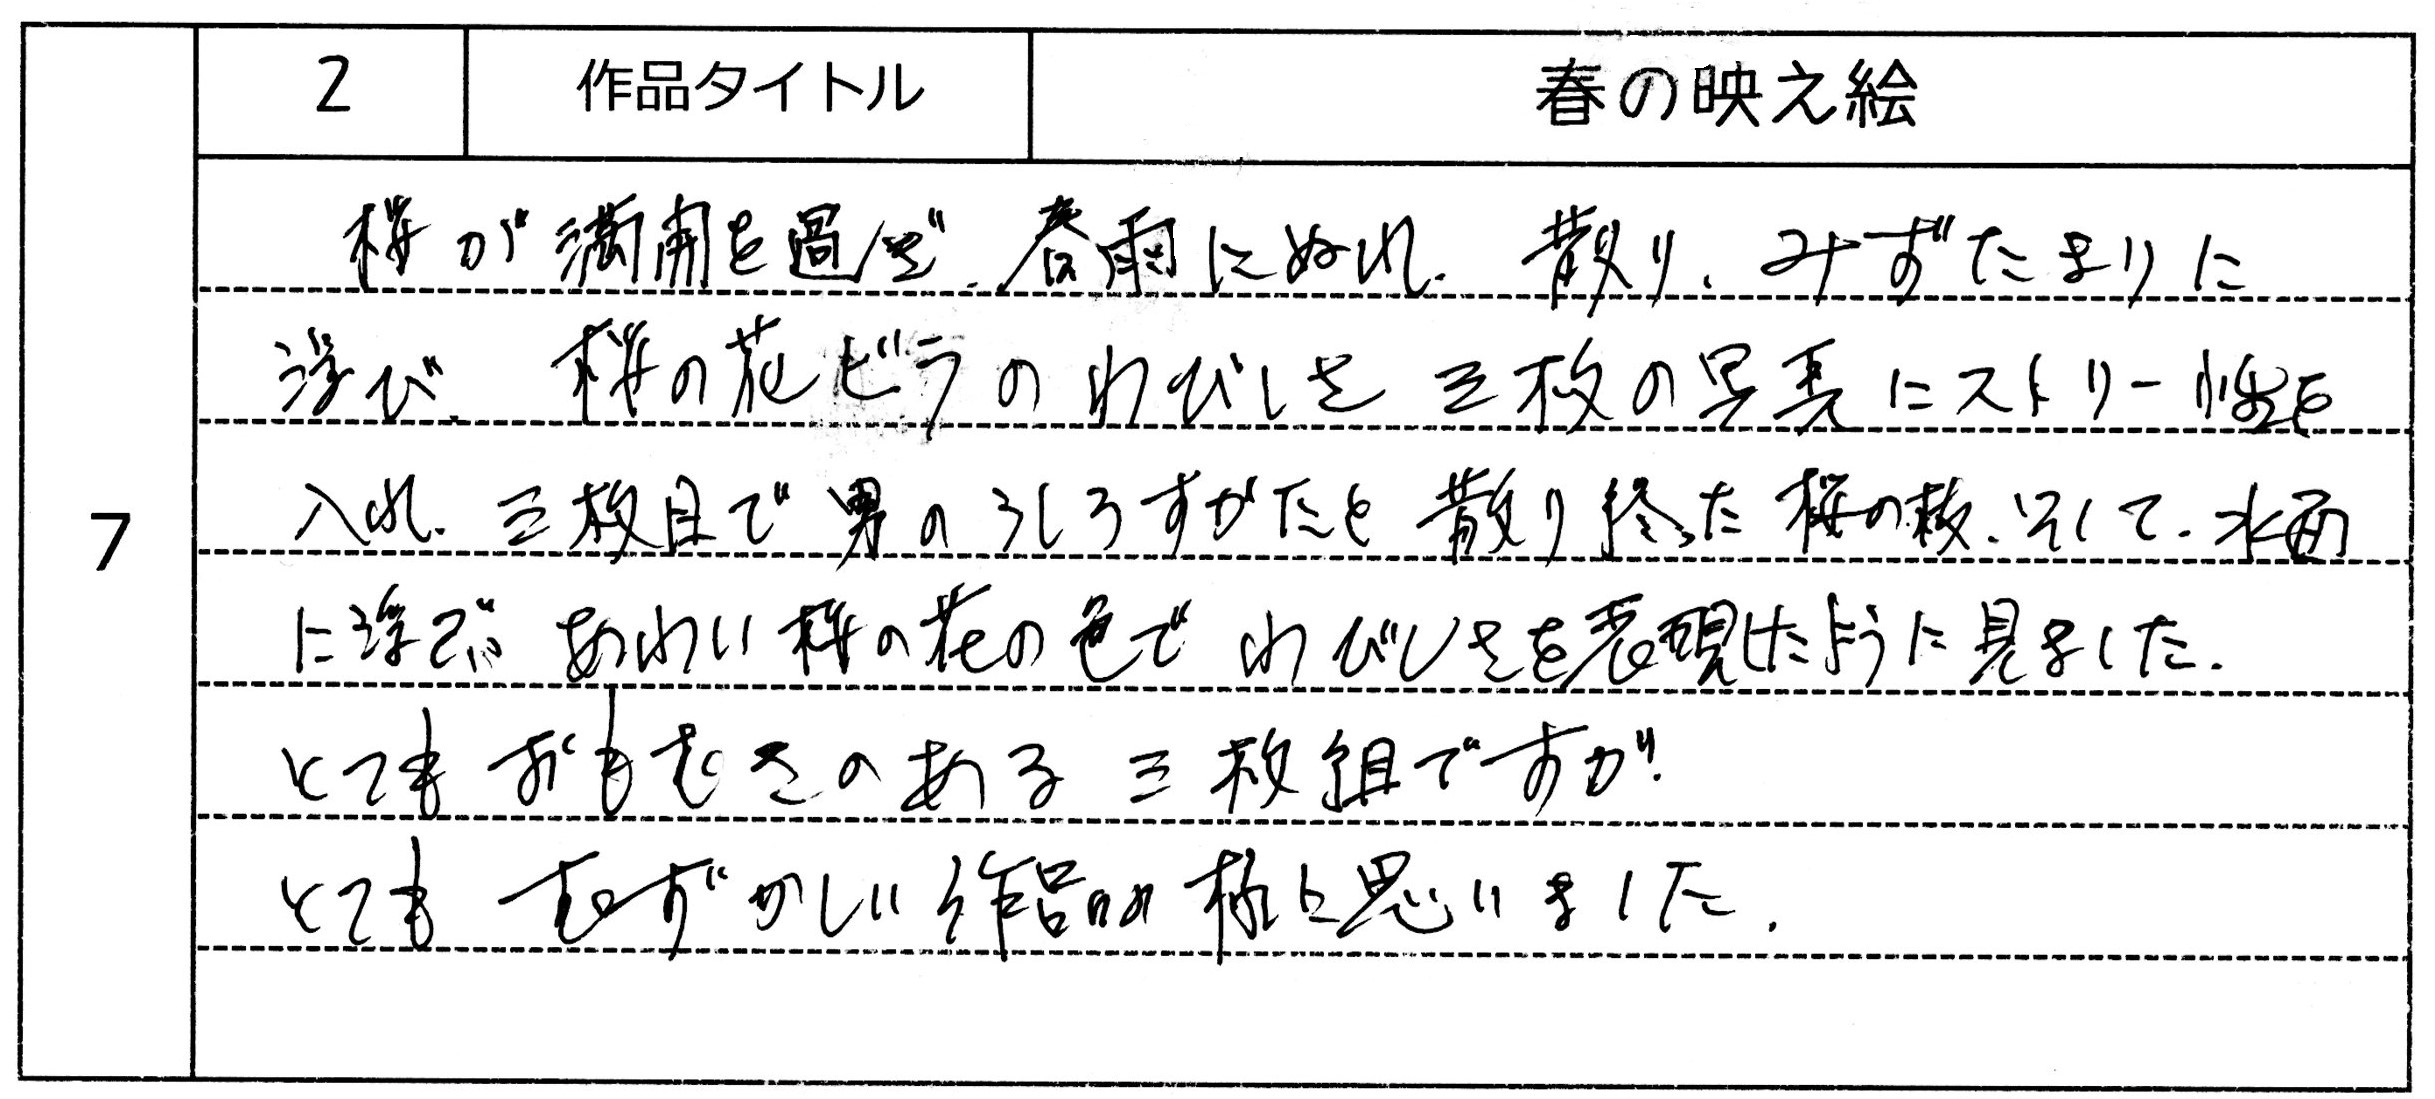 7
2 作品タイトル 春の映え絵
桜が満開を過ぎ、春雨にぬれ、散り、みずたまりに
浮び、桜の花ビラのわびしさ三枚の写真にストリー性を
入れ、三枚目で男のうしろすがたと散り終った桜の枝、そして、水面
に浮ぶあわい桜の花の色でわびしさを表現したように見ました。
とてもおもむきのある三枚組ですが、
とてもむずかしい作品の様に思いました。